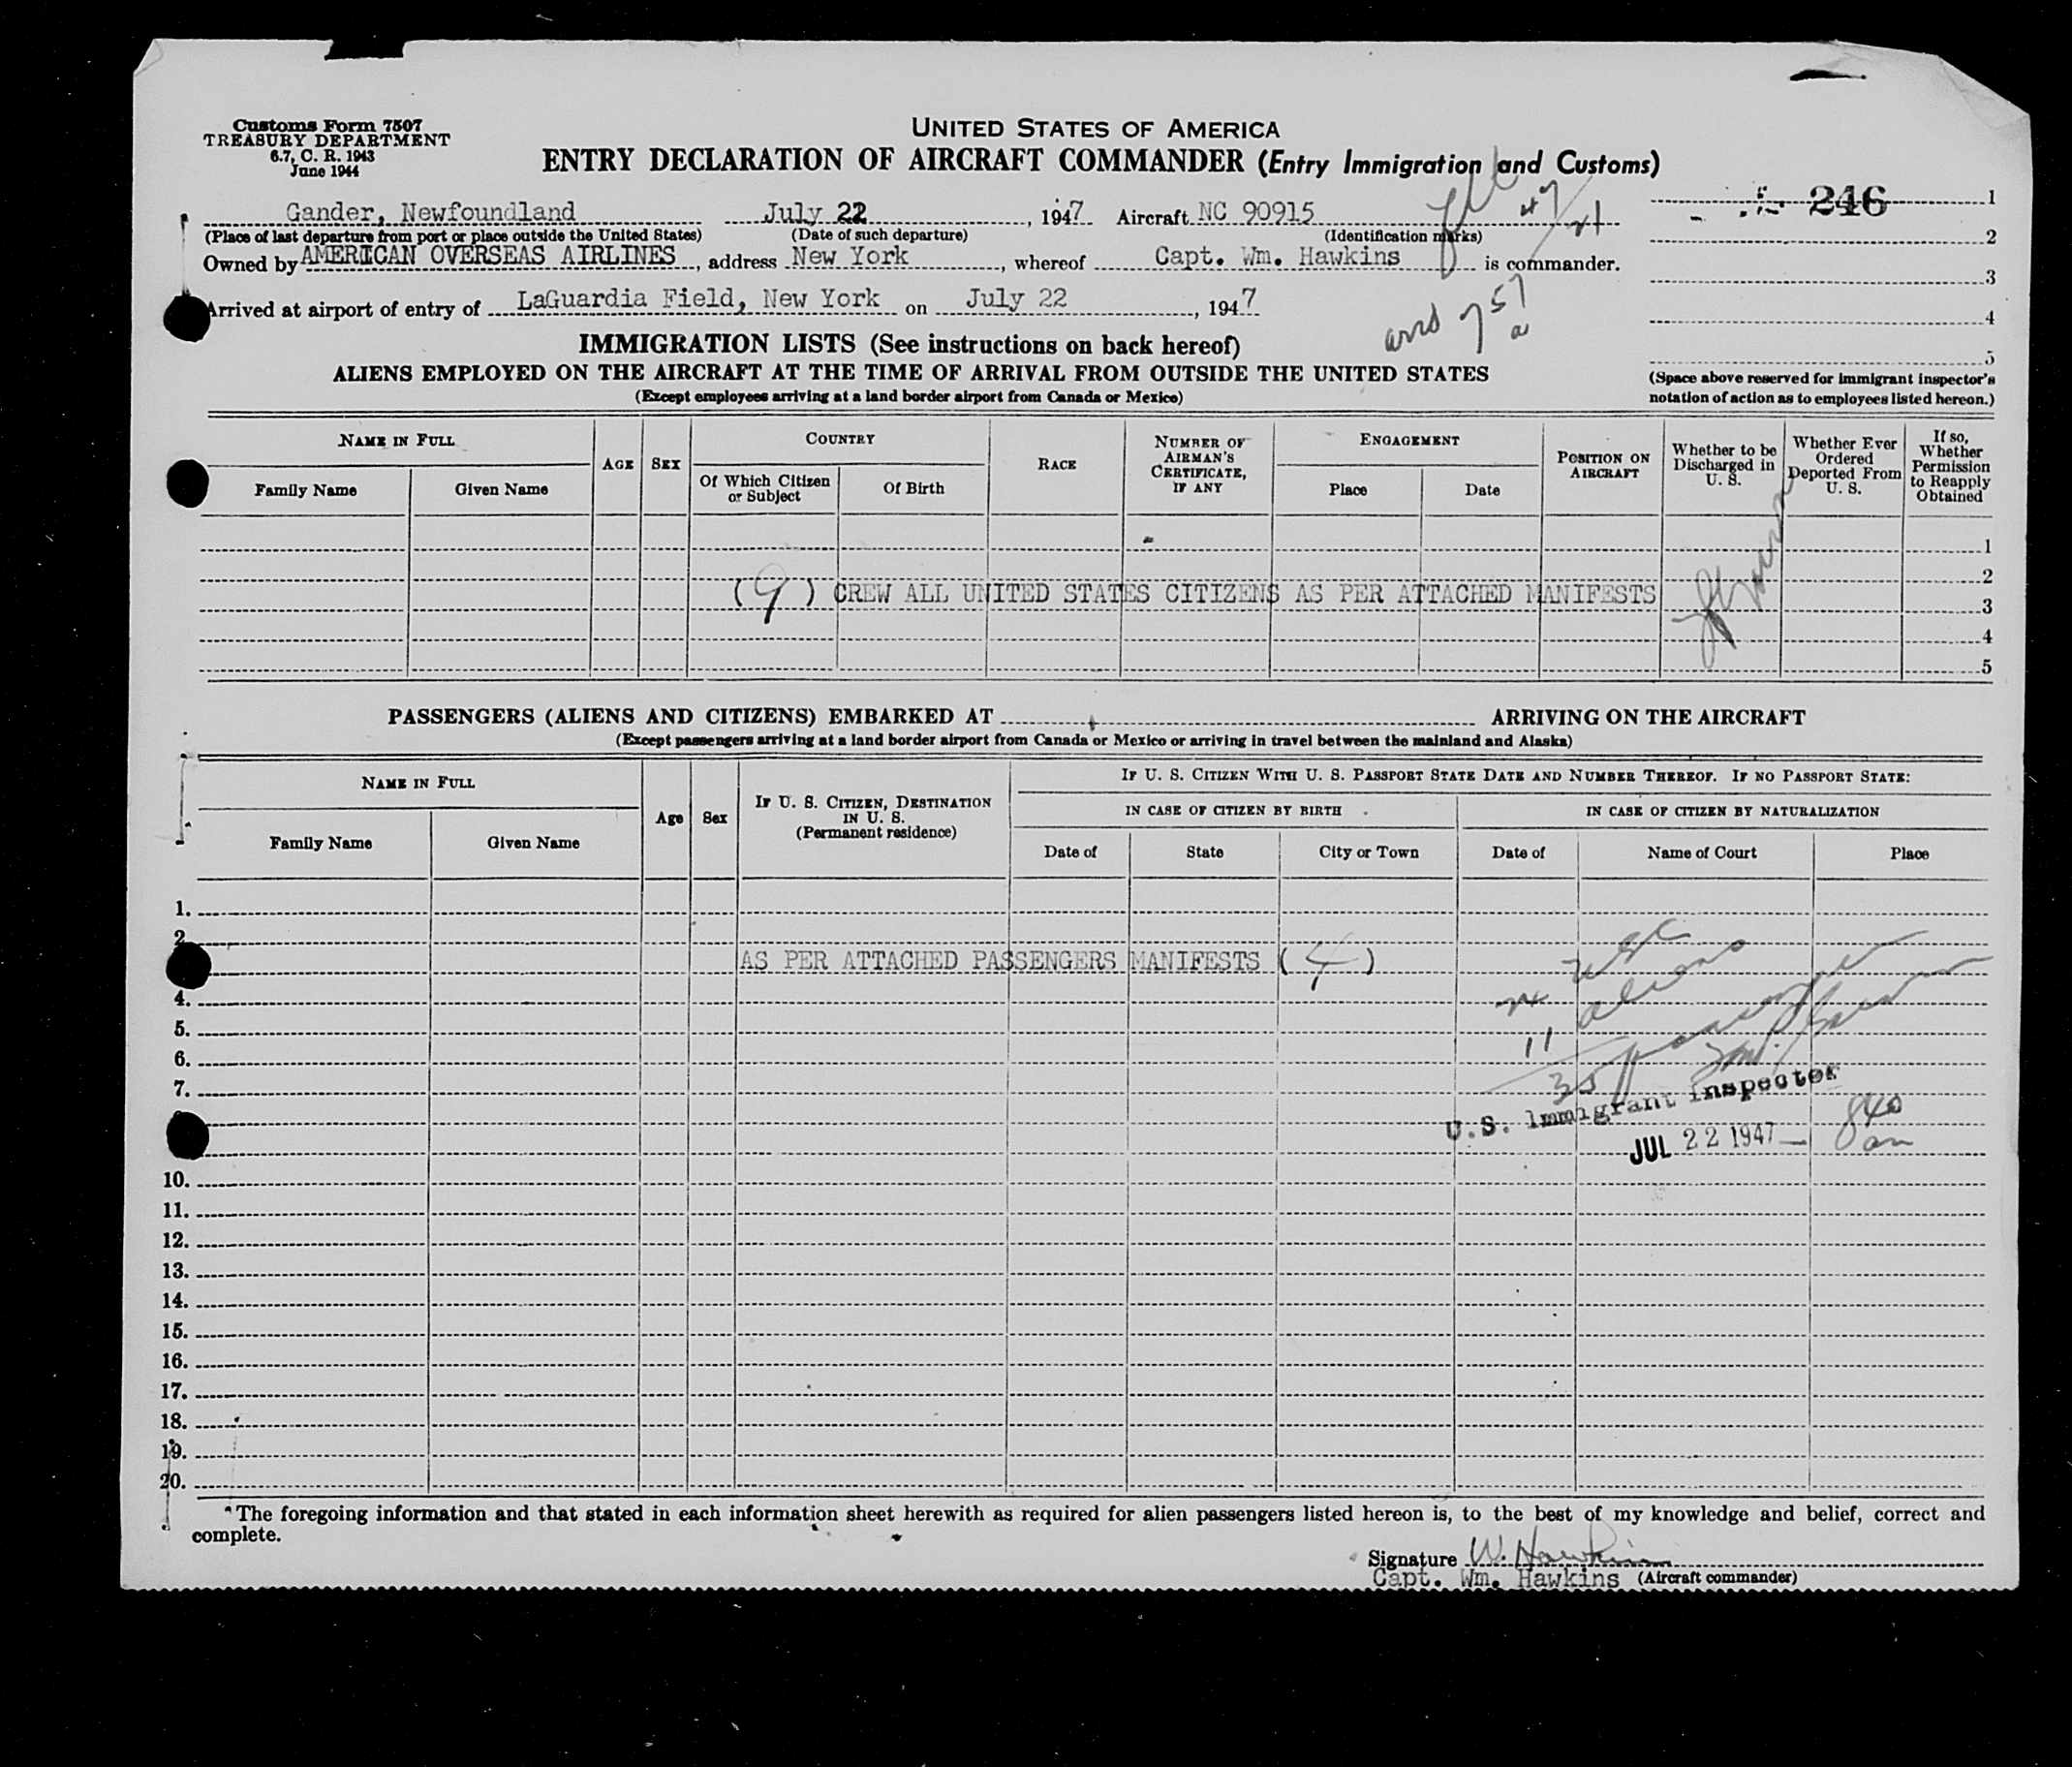 Customs Form 7507
TREASURY DEPARTMENT
6.7, C. R. 1943
June 1944
UNITED STATES OF AMERICA
ENTRY DECLARATION OF AIRCRAFT COMMANDER (Entry Immigration and Customs)
246
Gander, Newfoundland July 22, 1947 Aircraft NC 90915
(Place of last departure from port or place outside the United States) (Date of such departure) (Identification marks)
Owned by AMERICAN OVERSEAS AIRLINES, address New York, whereof Capt. Wm. Hawkins is commander.
Arrived at airport of entry of LaGuardia Field, New York on July 22, 1947
757
a
1
2
3
4
5
(Space above reserved for immigrant inspector's
notation of action as to employees listed hereon.)
IMMIGRATION LISTS (See instructions on back hereof)
ALIENS EMPLOYED ON THE AIRCRAFT AT THE TIME OF ARRIVAL FROM OUTSIDE THE UNITED STATES
(Except employees arriving at a land border airport from Canada or Mexico)
NAME IN FULL
Family Name
Given Name
AGE
SEX
COUNTRY
Of Which Citizen
or Subject
Of Birth
RACE
NUMBER OF
AIRMAN'S
CERTIFICATE,
IF ANY
ENGAGEMENT
Place
Date
POSITION ON
AIRCRAFT
Whether to be
Discharged in
U. S.
Whether Ever
Ordered
Deported From
U. S.
If so,
Whether
Permission
to Reapply
Obtained
1
2
(9) CREW ALL UNITED STATES CITIZENS AS PER ATTACHED MANIFESTS
3
4
5
PASSENGERS (ALIENS AND CITIZENS) EMBARKED AT ARRIVING ON THE AIRCRAFT
(Except passengers arriving at a land border airport from Canada or Mexico or arriving in travel between the mainland and Alaska)
NAME IN FULL
Family Name
Given Name
Age
Sex
IF U. S. CITIZEN, DESTINATION
IN U. S.
(Permanent residence)
IF U. S. CITIZEN WITH U. S. PASSPORT STATE DATE AND NUMBER THEREOF. IF NO PASSPORT STATE:
IN CASE OF CITIZEN BY BIRTH
IN CASE OF CITIZEN BY NATURALIZATION
Date of
State
City or Town
Date of
Name of Court
Place
1.
2.
AS PER ATTACHED PASSENGERS MANIFESTS (4)
24 USC
4.
11 aliens
5.
6.
35 passengers
7.
U.S. Immigrant Inspector
JUL 22 1947
840
am
10.
11.
12.
13.
14.
15.
16.
17.
18.
19.
20.
The foregoing information and that stated in each information sheet herewith as required for alien passengers listed hereon is, to the best of my knowledge and belief, correct and
complete.
Signature W. Hawkins
Capt. Wm. Hawkins (Aircraft commander)